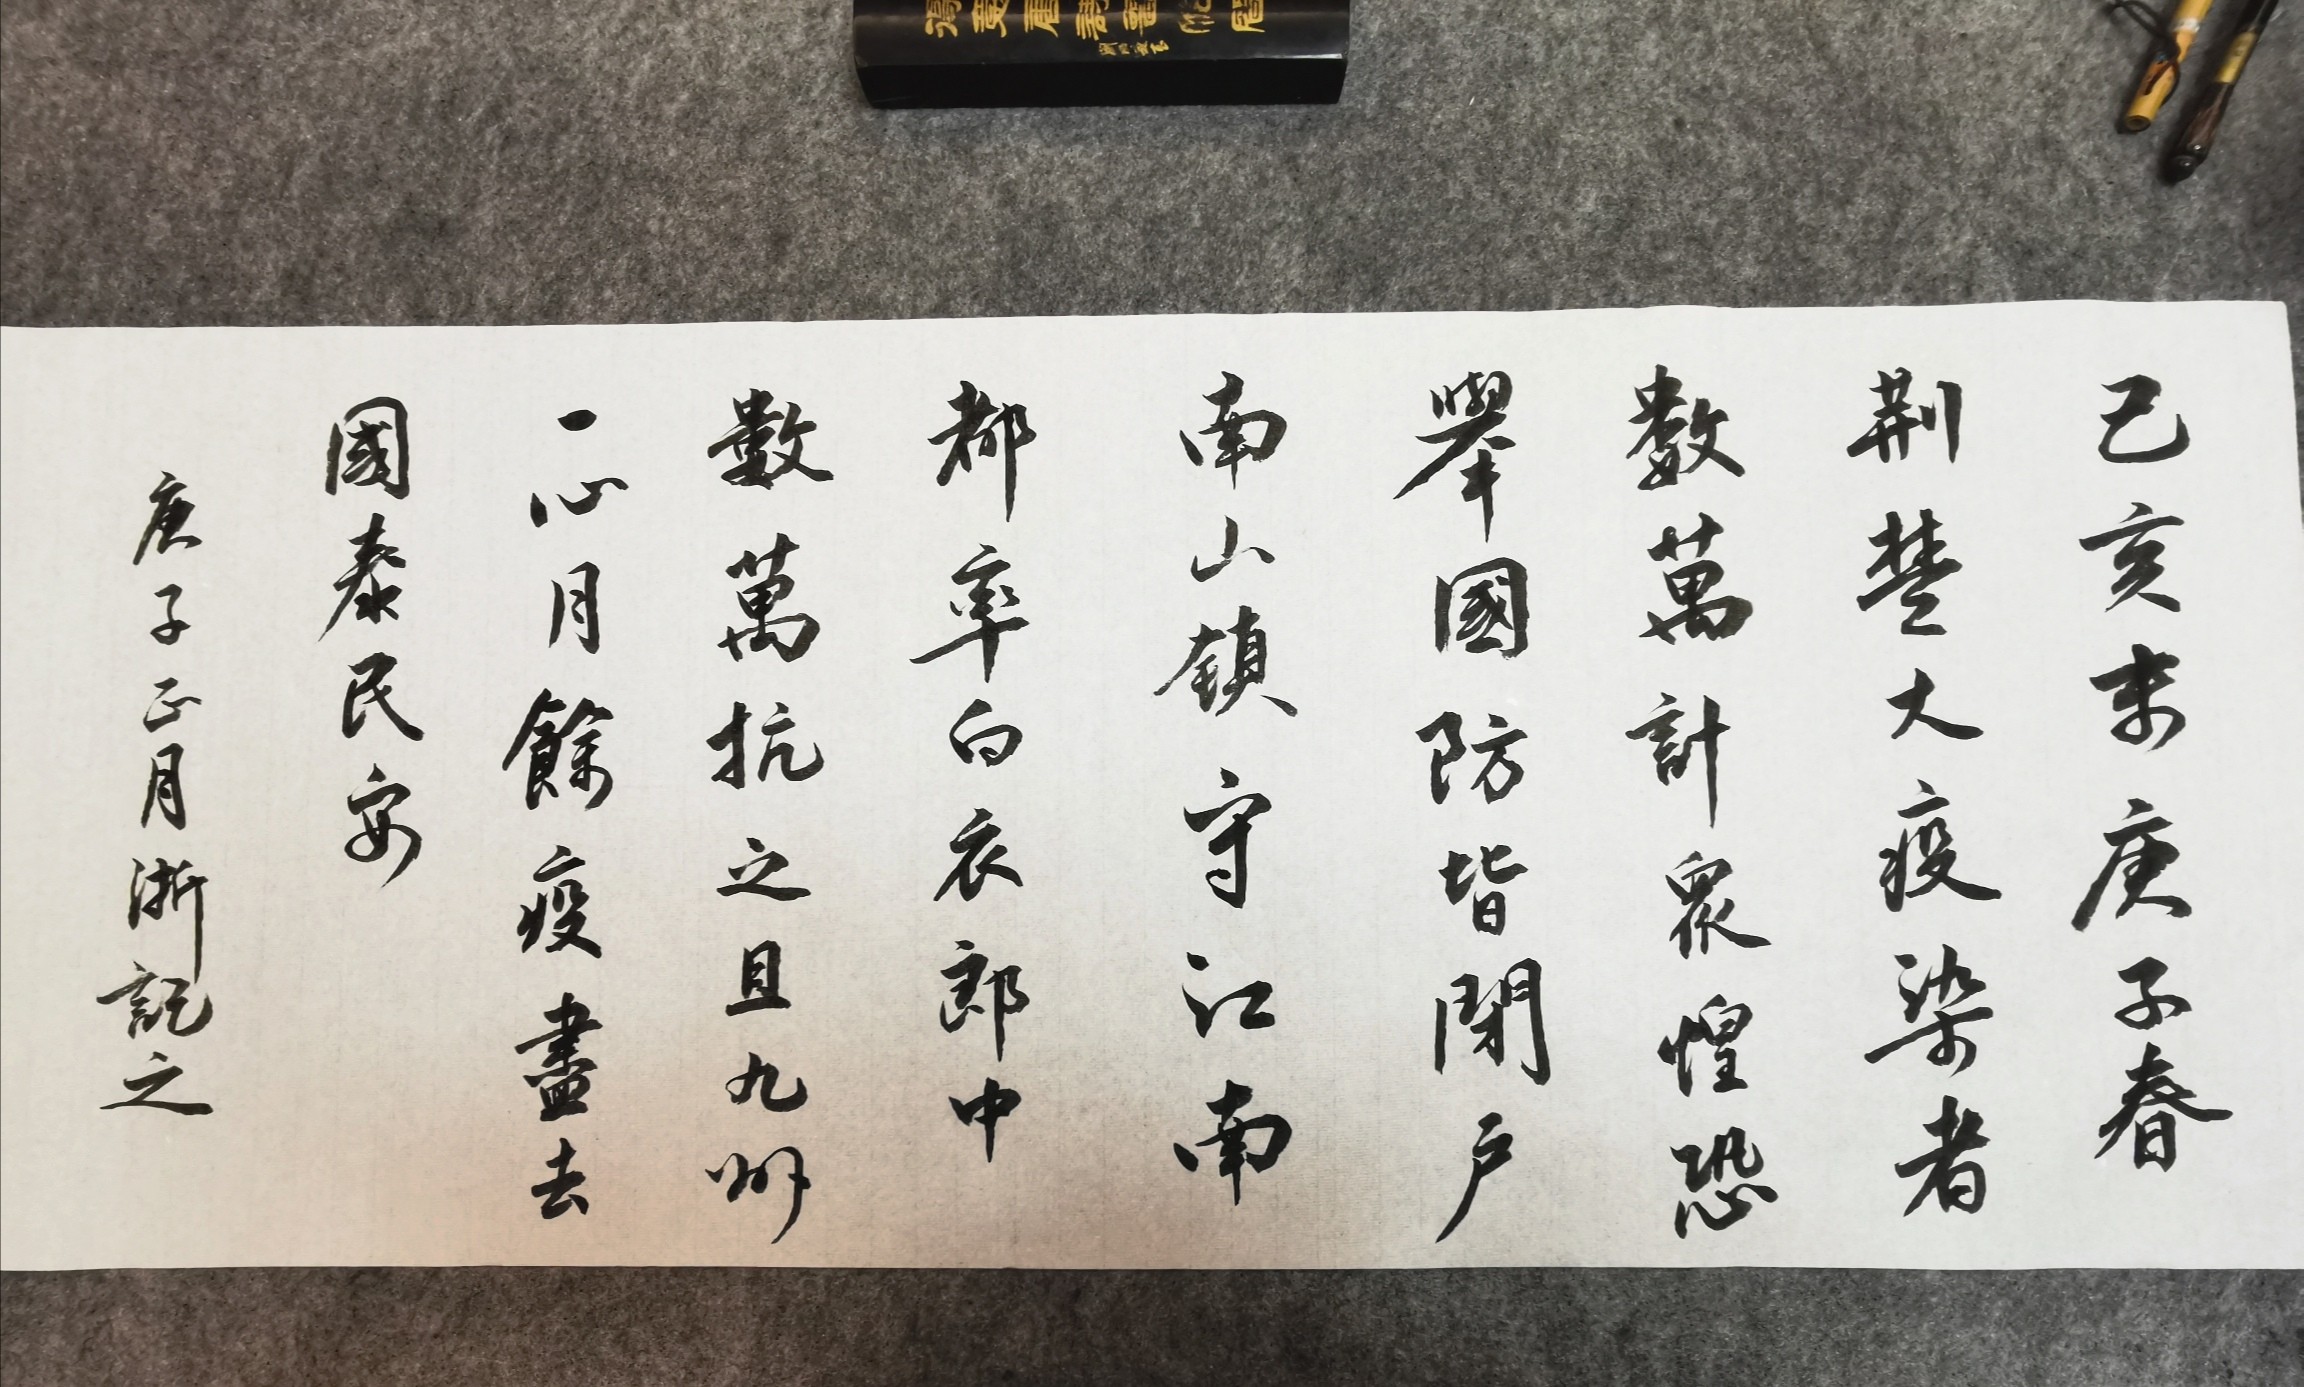 己亥末庚子春
荆楚大疫染者
數萬計衆惶恐
舉國防皆閉户
南山鎮守江南
都率白衣郎中
數萬抗之且九州
一心月餘疫盡去
國泰民安
庚子正月浙記之